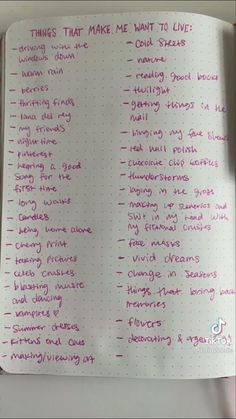 THINGS THAT MAKE ME WANT TO LIVE:
- driving with the
windows down
- warm rain
- berries
- thrifting finds
- lana del rey
- my friends
- night time
- pinterest
- hearing a good
song for the
first time
- long walks
- candles
- being home alone
- cherry print
- taking pictures
- celeb crushes
- blasting music
and dancing
- vampires
- summer dresses
- kittens and cats
- making/viewing art
- cold sheets
- nature
- reading good books
- twilight
- getting things in the
mail
- binging my fav shows
- red nail polish
- chocolate chip waffles
- thunderstorms
- laying in the grass
- making up scenarios and
shit in my head with
my fictional crushes
- face masks
- vivid dreams
- change in seasons
- things that bring back
memories
- flowers
- decorating &
TikTok